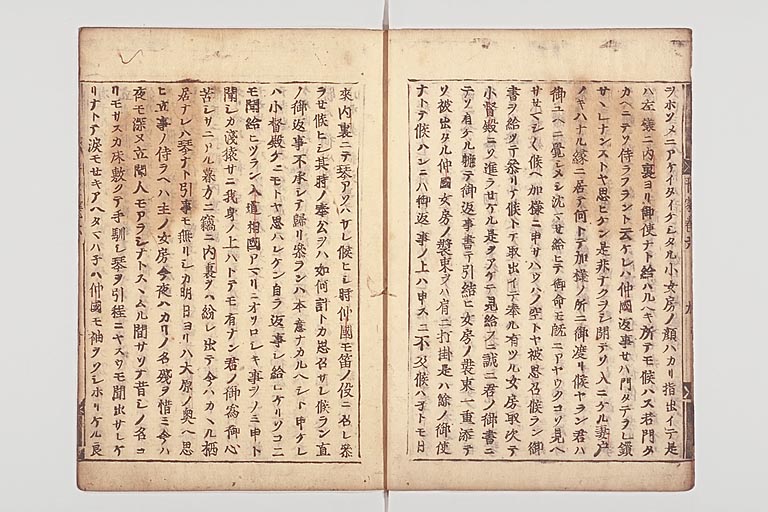 ヲホソメニアケイタイケシタル小女房ノ顔ハカリ指出イテ是
ハ左樣ニ内裏ヨリ御使ナト給ハルヘキ所テモ候ハス若門タ
カヘニテソ侍ラフラント云ケレハ仲國返事セハ門タテラレ鎖
サヽレナンストヤ思ヒケン是非ナクヲシ開テソ入ニケル妻戸
ノキハナル縁ニ居テ何トテ加樣ノ所ニ御渡リ候ヤラン君ハ
御ユヘニ覺シメシ沈マせ給ヒテ御命モ既ニアヤウクコソ見ヘ
サせマシ〳〵候ヘ加樣ニ申サハウハノ空トヤ被思召候ラン御
書ヲ給ツテ參リテ候トテ取出イテ奉ル有ツル女房取次テ
小督殿ニソ進ラせケル是ヲアケテ見給フニ誠ニ君ノ御書ニ
テソ有ケル軈テ御返事書テ引結ヒ女房ノ裝束一重添テ
ソ被出タル仲國女房ノ裝束ヲハ肩ニ打掛是ハ餘ノ御使
ナトテ候ハンニハ御返事ノ上ハ申スニ不及候ヘ子トモ日
來内裏ニテ琴アソハサレ候ヒシ時仲國モ笛ノ役ニ名レ參
ラせ候ヒシ其時ノ奉公ヲハ如何計トカ思召サレ候ラン直
ノ御返事不承シテ歸リ參ランハ本意ナカルヘシト申ケレ
ハ小督殿ケニモトヤ思ハレケン自ラ返事シ給ヒケリソコニ
モ聞給ヒツラン入道相國アマリニオソロシキ事ヲノミ申ト
聞シカ淺猿サニ我身ノ上ハトテモ有ナン君ノ御爲御心
苦シサニアル暮方ニ竊ニ内裏ヲハ紛レ出テ今ハカヽル栖
居ナレハ琴ナト引事モ無リシカ明日ヨリハ大原ノ奥ヘ思
ヒ立事ノ侍ラヘハ主ノ女房今夜ハカリノ名殘ヲ惜ミ今ハ
夜モ深ヌ立聞人モアラシナトスヽムル間サソナ昔シノ名コ
リモサスカ床敷クテ手馴シ琴ヲ引程ニヤスウモ聞出サレケ
リナトテ涙モせキアヘタマハ子ハ仲國モ袖ヲソシホリケル良